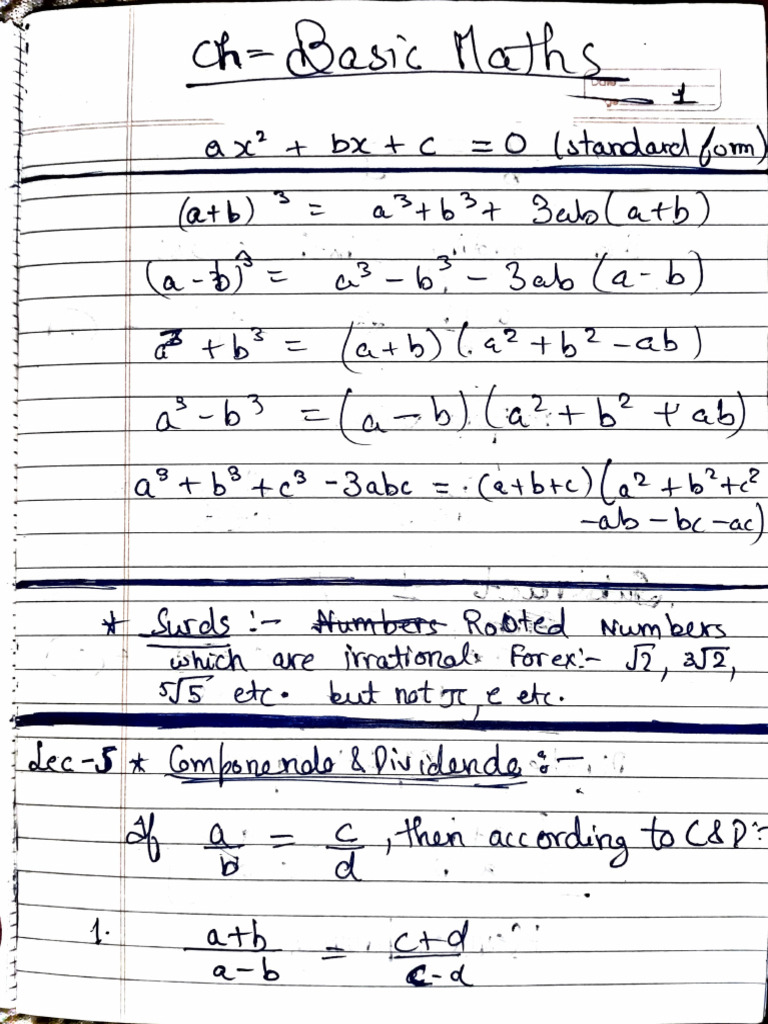 Ch = Basic Maths
1
ax² + bx + c = 0 (standard form)
(a+b)³ = a³+b³+ 3ab(a+b)
(a-b)³ = a³ - b³ - 3ab (a-b)
a³ + b³ = (a+b) (a² + b² - ab)
a³ - b³ = (a-b) (a² + b² + ab)
a³ + b³ + c³ - 3abc = (a+b+c) (a² + b² + c²
-ab - bc - ac)
* Surds :- Numbers Rooted Numbers
which are irrational. For ex:- √2, 3√2,
5√5 etc. but not π, e etc.
Lec-5 * Componendo & Dividendo :-
If a/b = c/d, then according to C&D:-
1. a+b/a-b = c+d/c-d